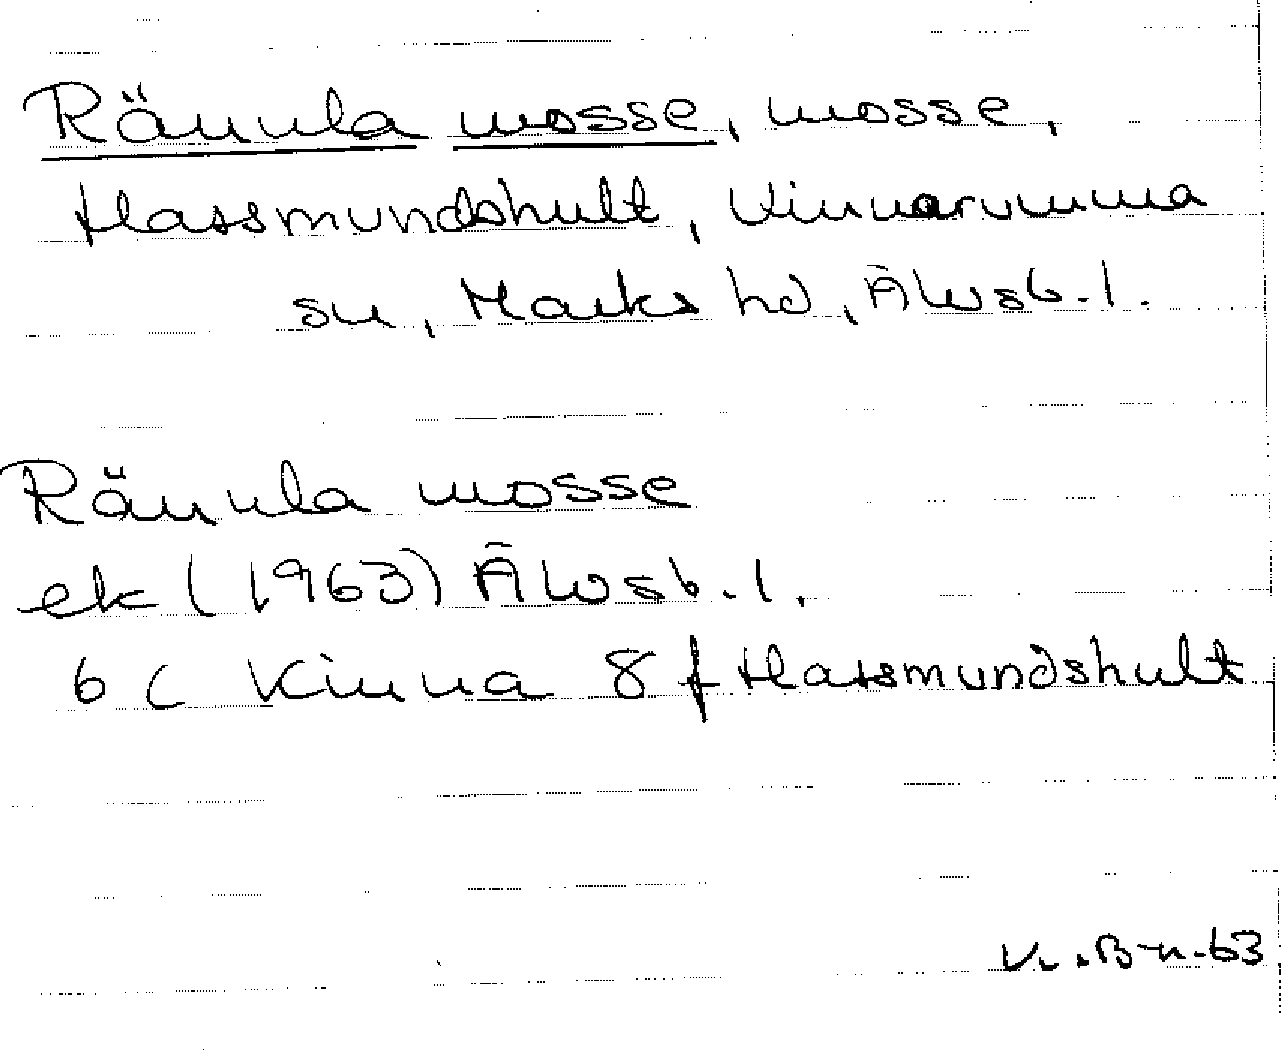 Rännla mosse, mosse,
Hassmundshult, Kinnarumma
sn, Marks hd, Älvsb. l.
Rännla mosse
ek (1963) Älvsb. l.
6 C Kinna 8 f Hassmundshult
63